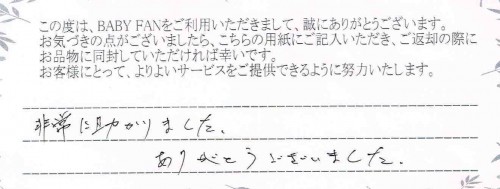 この度は、BABY FANをご利用いただきまして、誠にありがとうございます。
お気づきの点がございましたら、こちらの用紙にご記入いただき、ご返却の際に
お品物に同封していただければ幸いです。
お客様にとって、よりよいサービスをご提供できるように努力いたします。
非常に助かりました。
ありがとうございました。